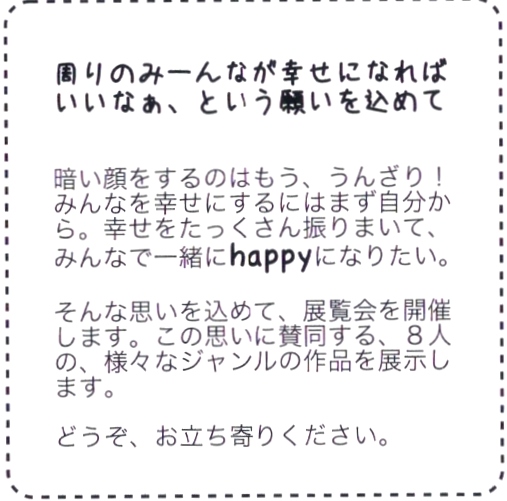 周りのみーんなが幸せになれば
いいなぁ、という願いを込めて
暗い顔をするのはもう、うんざり！
みんなを幸せにするにはまず自分か
ら。幸せをたっくさん振りまいて、
みんなで一緒にhappyになりたい。
そんな思いを込めて、展覧会を開催
します。この思いに賛同する、８人
の、様々なジャンルの作品を展示し
ます。
どうぞ、お立ち寄りください。